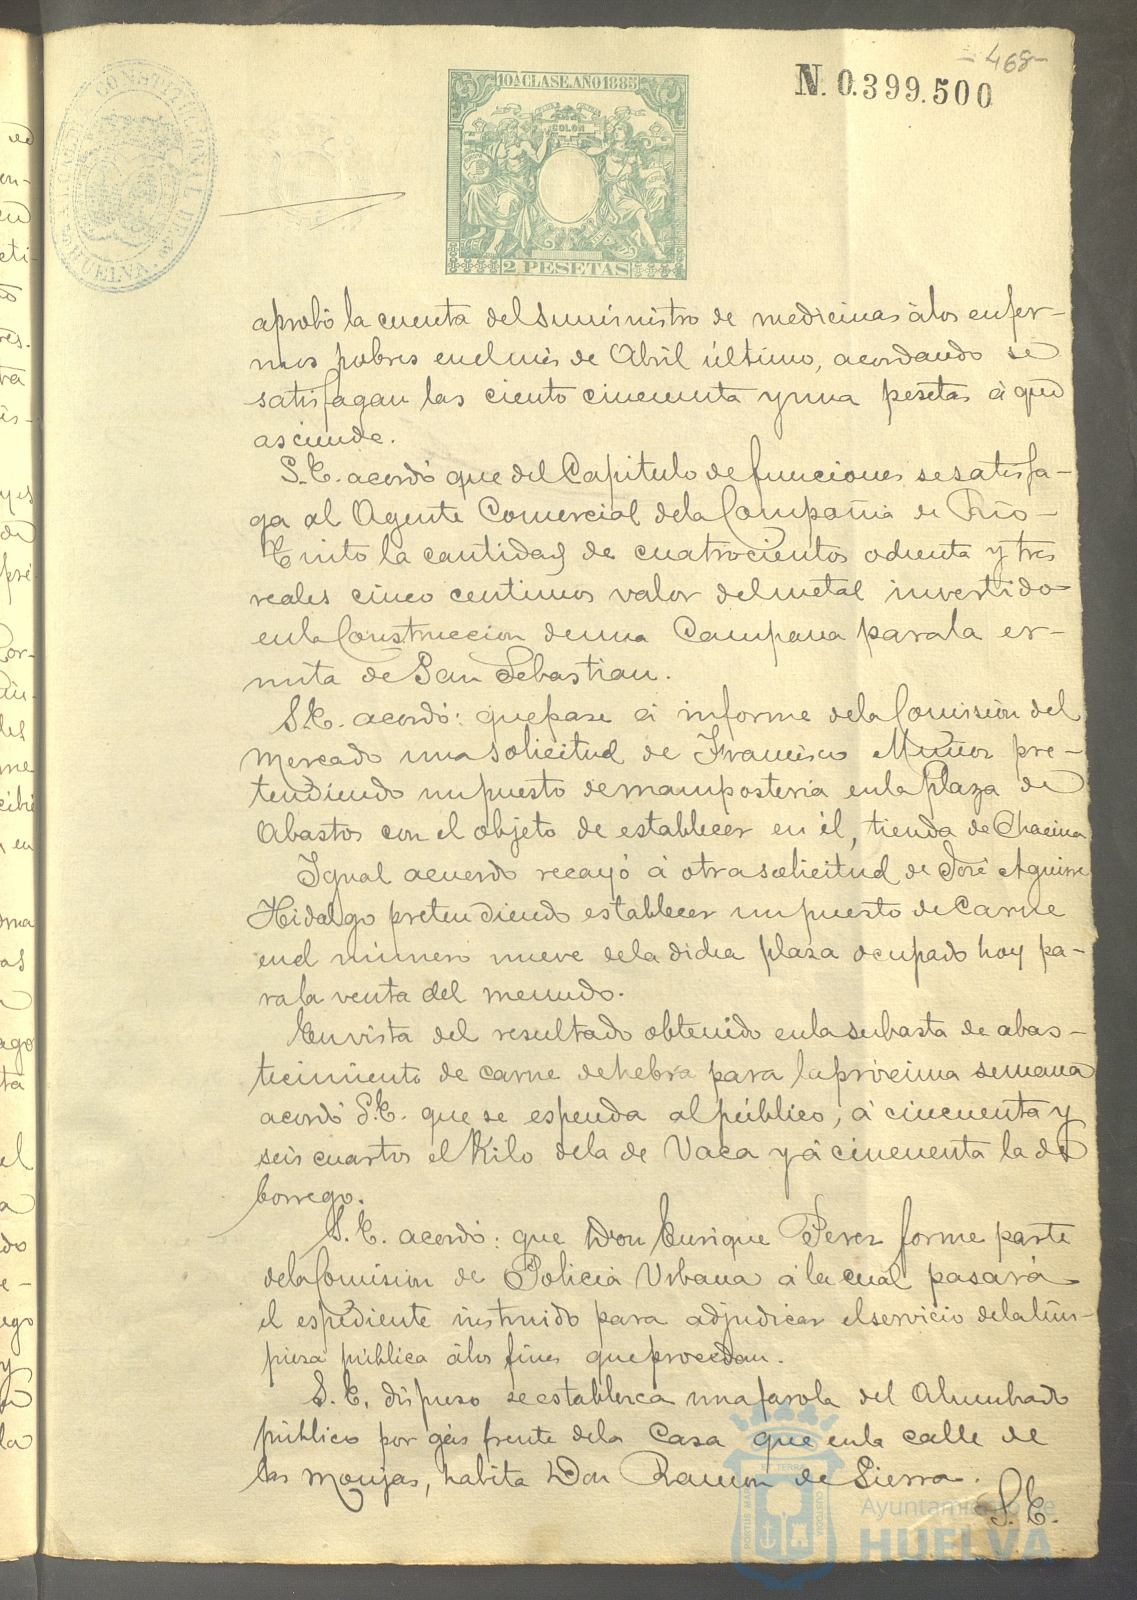 468
N. 0.399.500
CONSTITUCIONAL DE
HUELVA
10ª CLASE. AÑO 1885
COLON
2 PESETAS
aprobó la cuenta del suministro de medicinas á los enfer-
mos pobres en el mes de Abril último, acordando se
satisfagan las ciento cincuenta y una pesetas á que
asciende.
S. E. acordó que del Capitulo de funciones se satisfa-
ga al Agente Comercial de la Compañia de Rio-
Tinto la cantidad de cuatrocientos ochenta y tres
reales cinco centimos valor del metal invertido
en la Construccion de una Campana para la er-
mita de San Sebastian.
S. E. acordó: que pase á informe de la Comisión del
Mercado una solicitud de Francisco Muñoz pre-
tendiendo un puesto de mamposteria en la plaza de
Abastos con el objeto de establecer en él, tienda de Chacina
Igual acuerdo recayó á otra solicitud de José Aguirre
Hidalgo pretendiendo establecer un puesto de Carne
en el número nueve de la dicha plaza ocupado hoy pa-
ra la venta del menudo.
En vista del resultado obtenido en la subasta de abas-
tecimiento de carne de hebra para la próxima semana
acordó S. E. que se espenda al público, á cincuenta y
seis cuartos el Kilo de la de Vaca y á cincuenta la de
borrego.
S. E. acordó: que Don Enrique Perez forme parte
de la Comisión de Policia Urbana á la cual pasará
el espediente instruido para adjudicar el servicio de la lim-
pieza pública á los fines que procedan.
S. E. dispuso se establezca una farola del Alumbrado
público por gas frente de la Casa que en la calle de
las Monjas, habita Don Ramon de Sierra.
S. E.
Ayuntamiento de
HUELVA